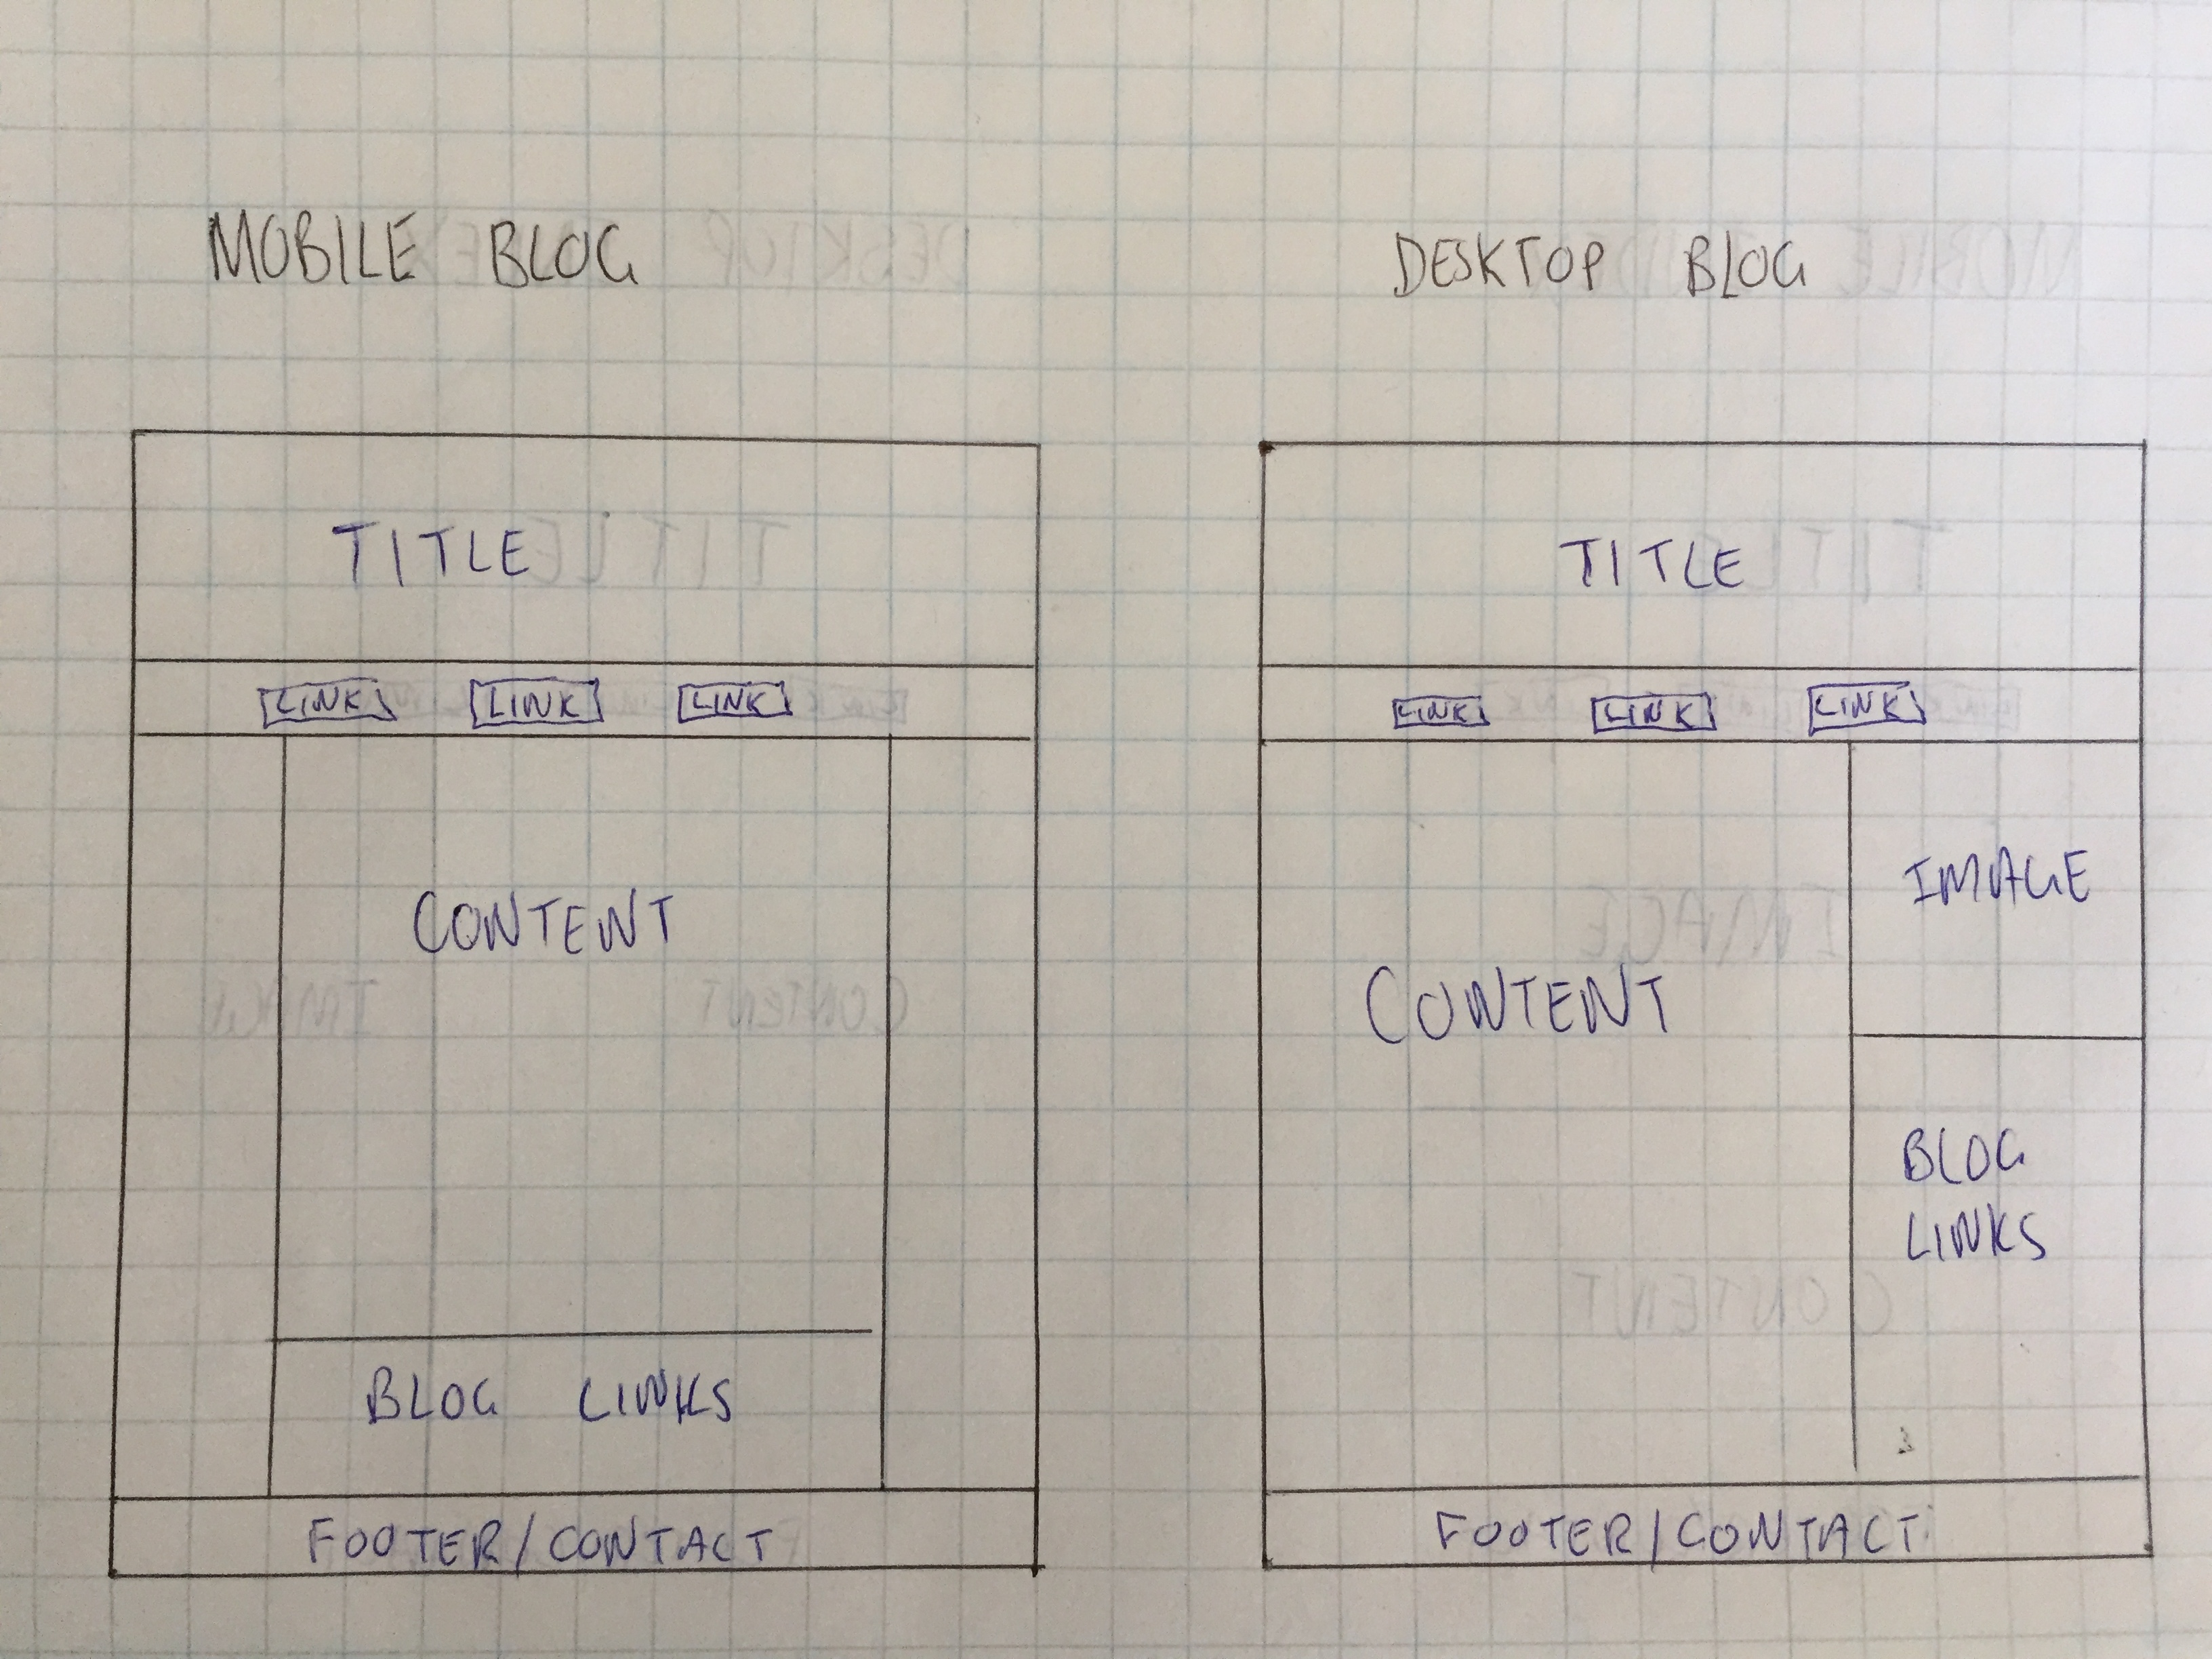 MOBILE BLOG
TITLE
LINK LINK LINK
CONTENT
BLOG LINKS
FOOTER/CONTACT
DESKTOP BLOG
TITLE
LINK LINK LINK
CONTENT
IMAGE
BLOG
LINKS
FOOTER/CONTACT